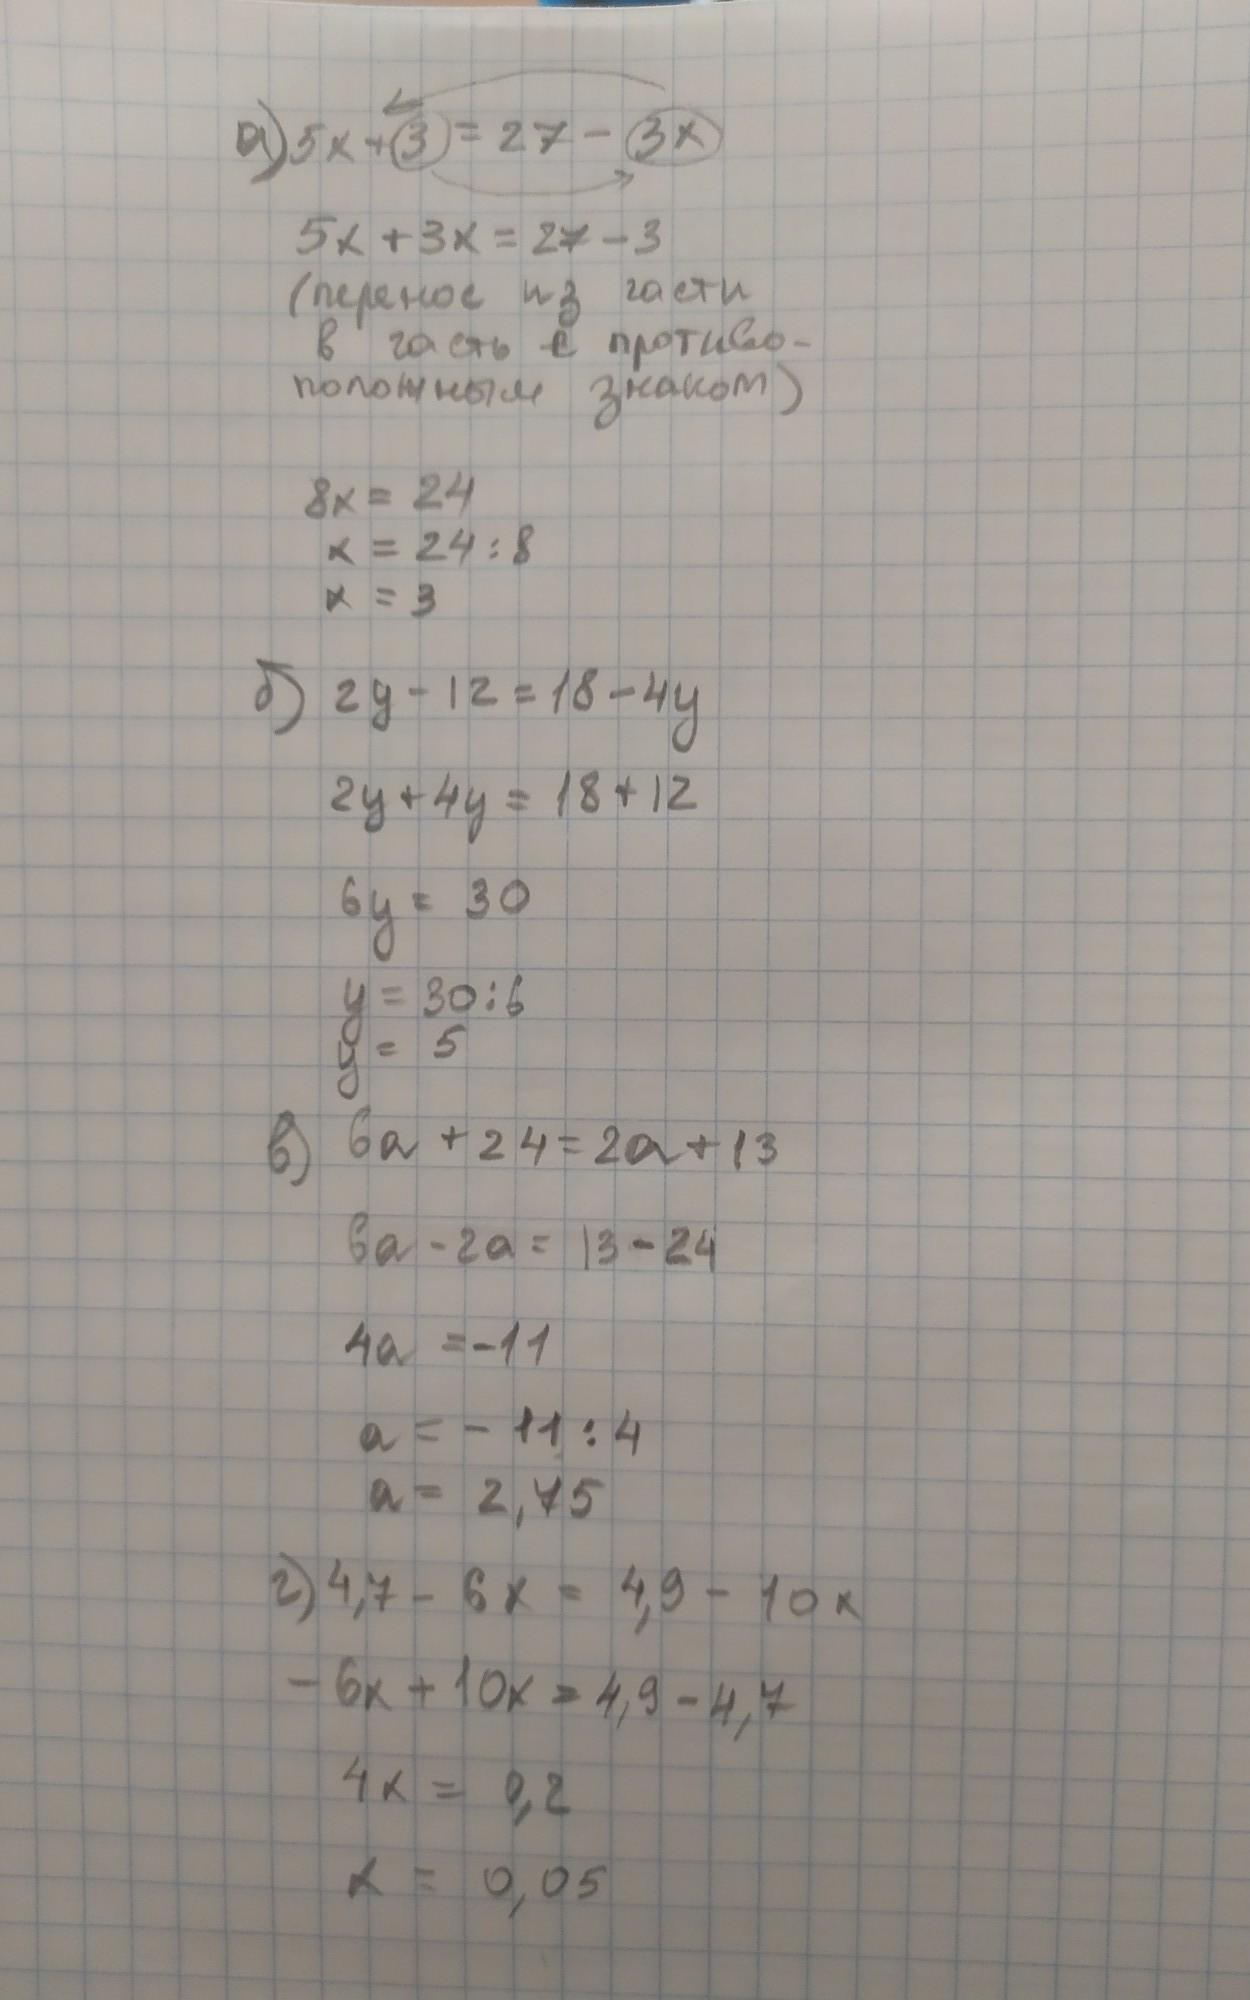 а) 5x + 3 = 27 - 3x
5x + 3x = 27 - 3
(перенос из части
в часть с противо-
положным знаком)
8x = 24
x = 24 : 8
x = 3
б) 2y - 12 = 18 - 4y
2y + 4y = 18 + 12
6y = 30
y = 30 : 6
y = 5
в) 6a + 24 = 2a + 13
6a - 2a = 13 - 24
4a = -11
a = - 11 : 4
a = 2,75
г) 4,7 - 6x = 4,9 - 10x
- 6x + 10x = 4,9 - 4,7
4x = 0,2
x = 0,05